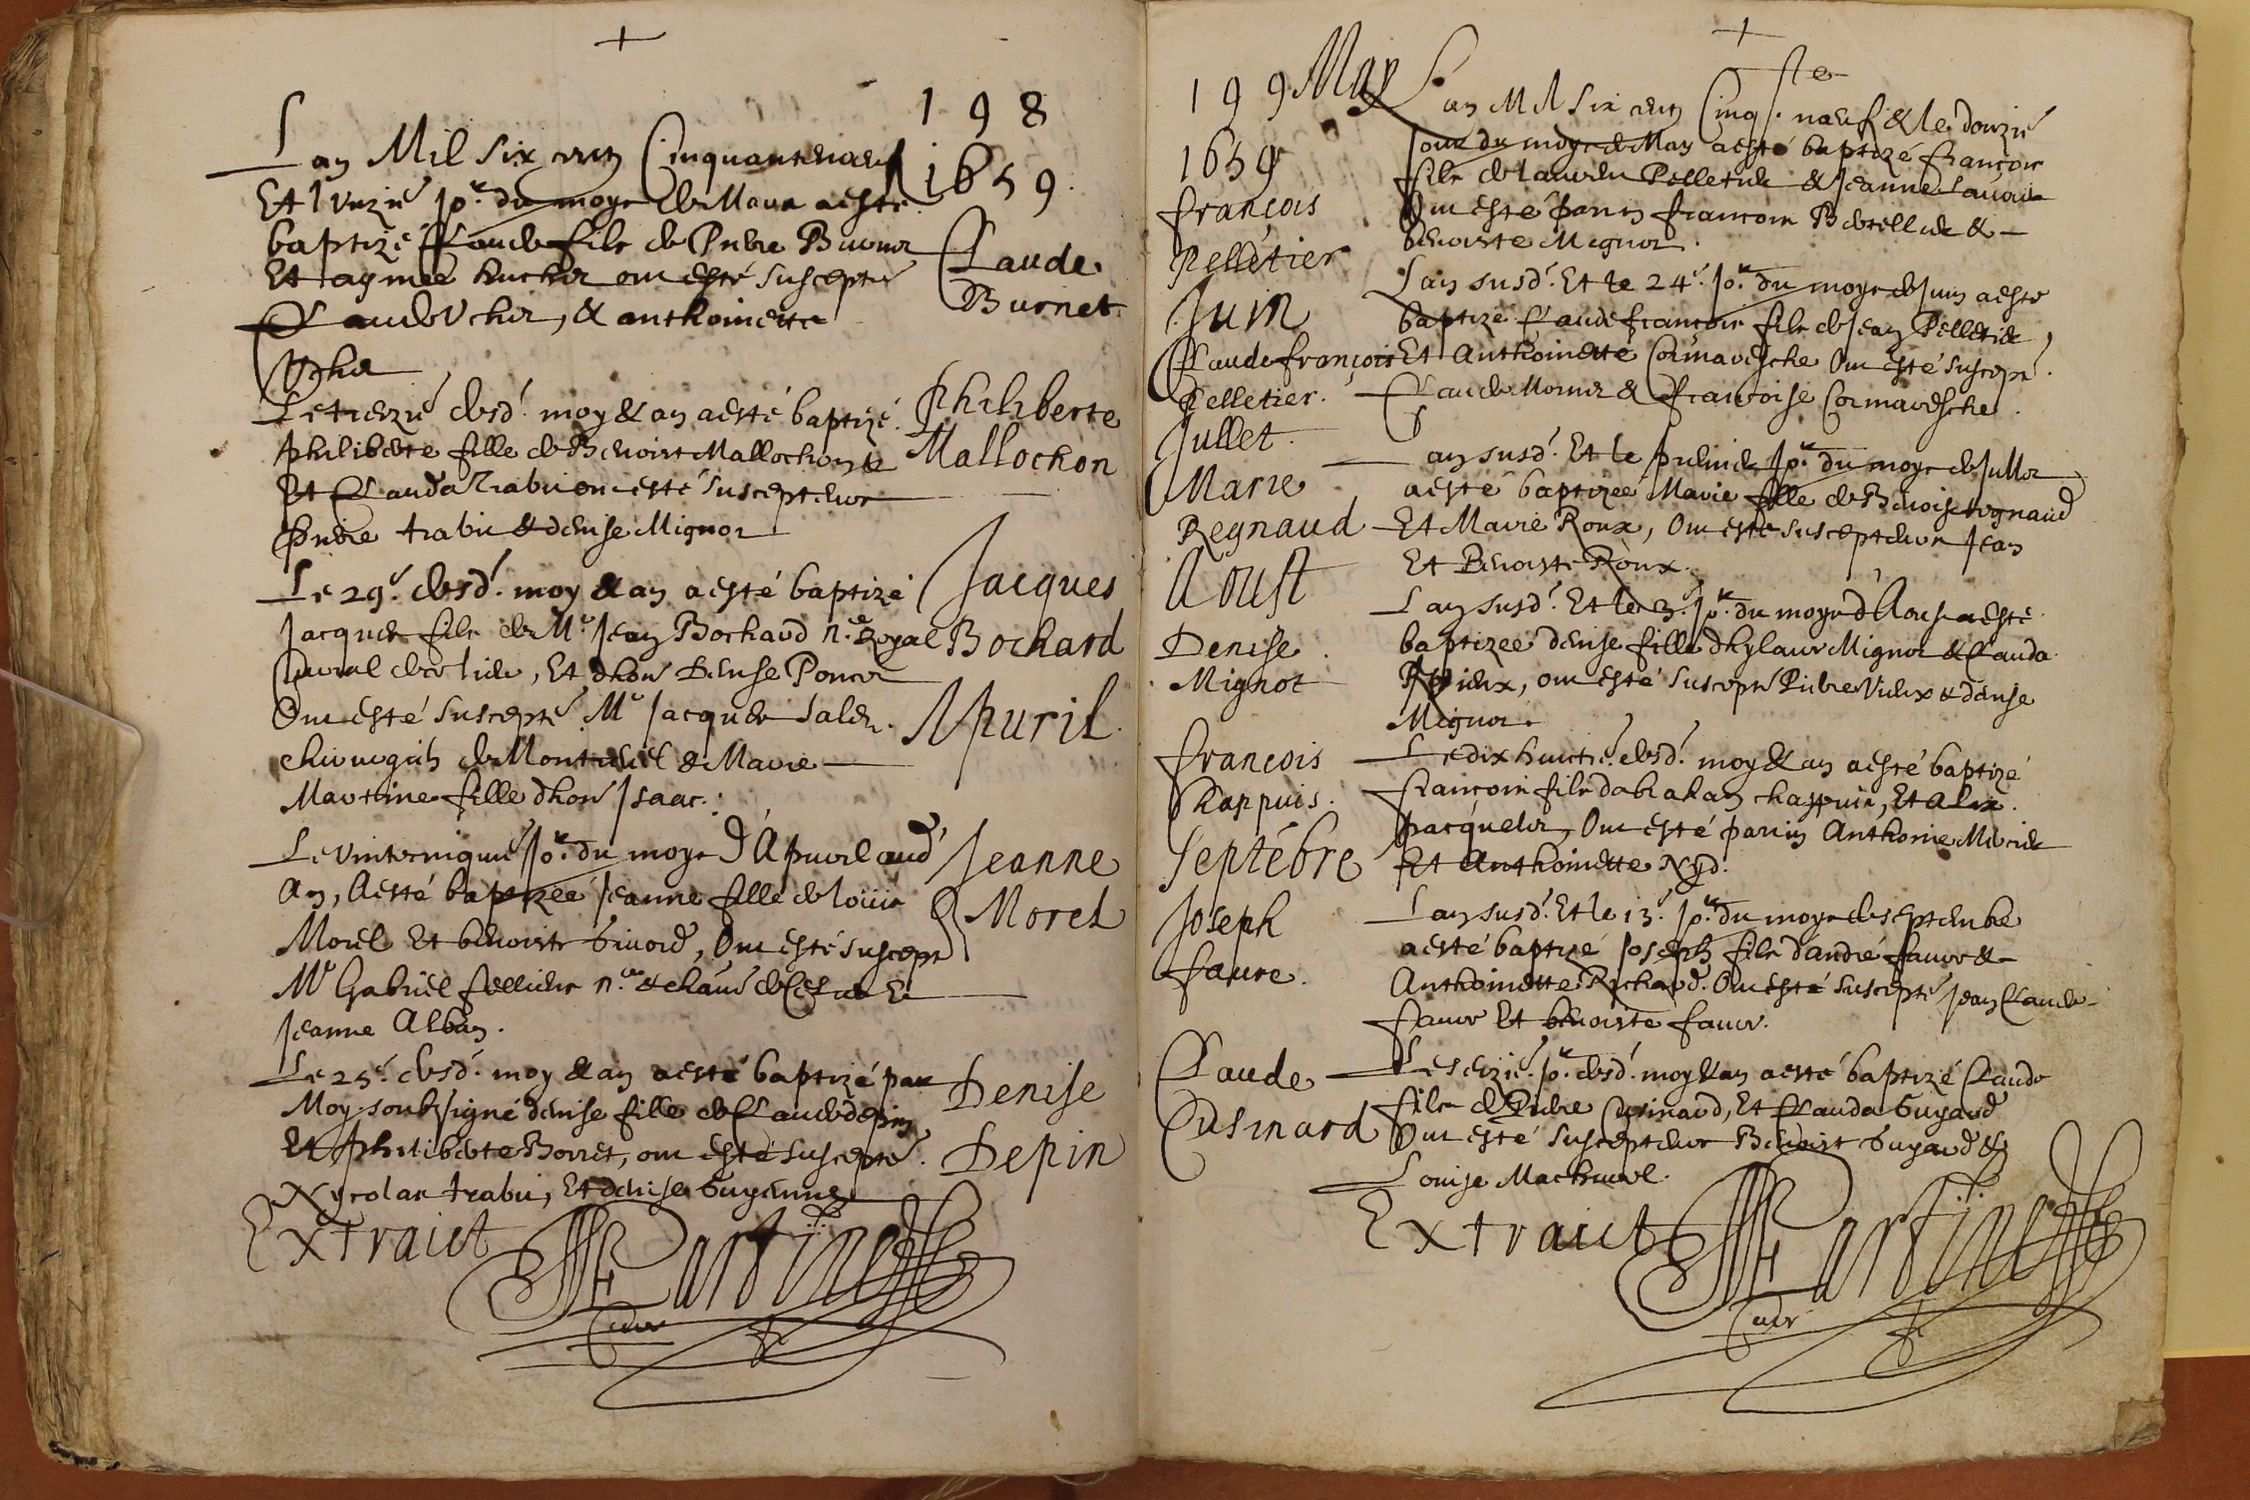 198
1659
Lan Mil Six cens Cinquanteneuf
Et unzie jor. du moys de Mars a esté
baptizé Claude filz de Pierre Burnet
Et aymee ont esté Suscepte
Claude Vcher, & anthoinette
Vcher
Claude
Burnet
Le trezie dusd. moy & an a esté baptizé
philiberte fille de Benoist Mallochon
Et Clauda Trabu ont esté Suscepteurs
Pierre trabu & denise Mignot
Philiberte
Mallochon
Le 29e. dusd. moy & an a esté baptizé
Jacques filz de Me. Jean Bochard n.re Royal
Et dhon. Denise Poncet
Ont esté Suscepte. Me Jacques
chirurgien de Montluel & Marie
Martine fille dhon. Isaac.
Jacques
Bochard
Apuril
Le jor. du moys d'Apuril aud
An, A esté baptizee Jeanne fille de Louis
Morel Et benoiste Guiard, Ont esté suscept
Me Gabriel n.re & de Et
Jeanne Alban.
Jeanne
Morel
Le 25e. dusd. moy & an a esté baptizé par
Moy soubsigné denise fille de Claude depin
Et philiberte Borret, ont esté suscepte.
Nycolas trabu, Et denise
Denise
Depin
Extraict Martine
Curé
199 May
1659
françois
Pelletier
Lan Mil Six cens Cinqte. neuf & le douzie
Jour du moys de May a esté baptizé françois
filz de Pelletier & Jeanne
Ont esté parin francois &
benoiste Mignot.
Juin
Claude françois
Pelletier.
Lan susd. Et le 24e. jor. du moys de Juin a esté
baptizé Claude françois filz de Jean Pelletier
Et Anthoinette Cormaresche Ont esté suscepte.
Claude Mornet & françoise Cormaresche.
Jullet
Marie
Regnaud
Lan susd. Et le premier jor. du moys de Jullet
a esté baptizee Marie fille de Benoist Regnaud
Et Marie Roux, Ont esté suscepteurs Jean
Et Benoiste Roux.
Aoust
Denise
Mignot
Lan susd. Et le 3. jor. du moys d'Aoust a esté
baptizee denise fille dhylaire Mignot & Clauda
Vieux, ont esté suscepte Pierre Vieux & denise
Mignot.
françois
Chappuis.
Le dix huictie. dusd. moy & an a esté baptizé
francois filz dabraham chappuis, Et Alix
pacquelet, Ont esté parin Anthoine
Et Anthoinette Nyd.
Septêbre
Joseph
faure.
Lan susd. Et le 13e. jor. du moys de septembre
a esté baptizé Joseph filz d'andré faure &
Anthoinette Richard. Ont esté suscepte Jean Claude
faure Et benoiste faure.
Claude
Cusinard
Le seizie. jor. dusd. moy & an a esté baptizé Claude
filz de Pierre Cusinard, Et Clauda Guyard
Ont esté suscepteurs Benoist Guyard &
Louise
Extraict Martine
Curé